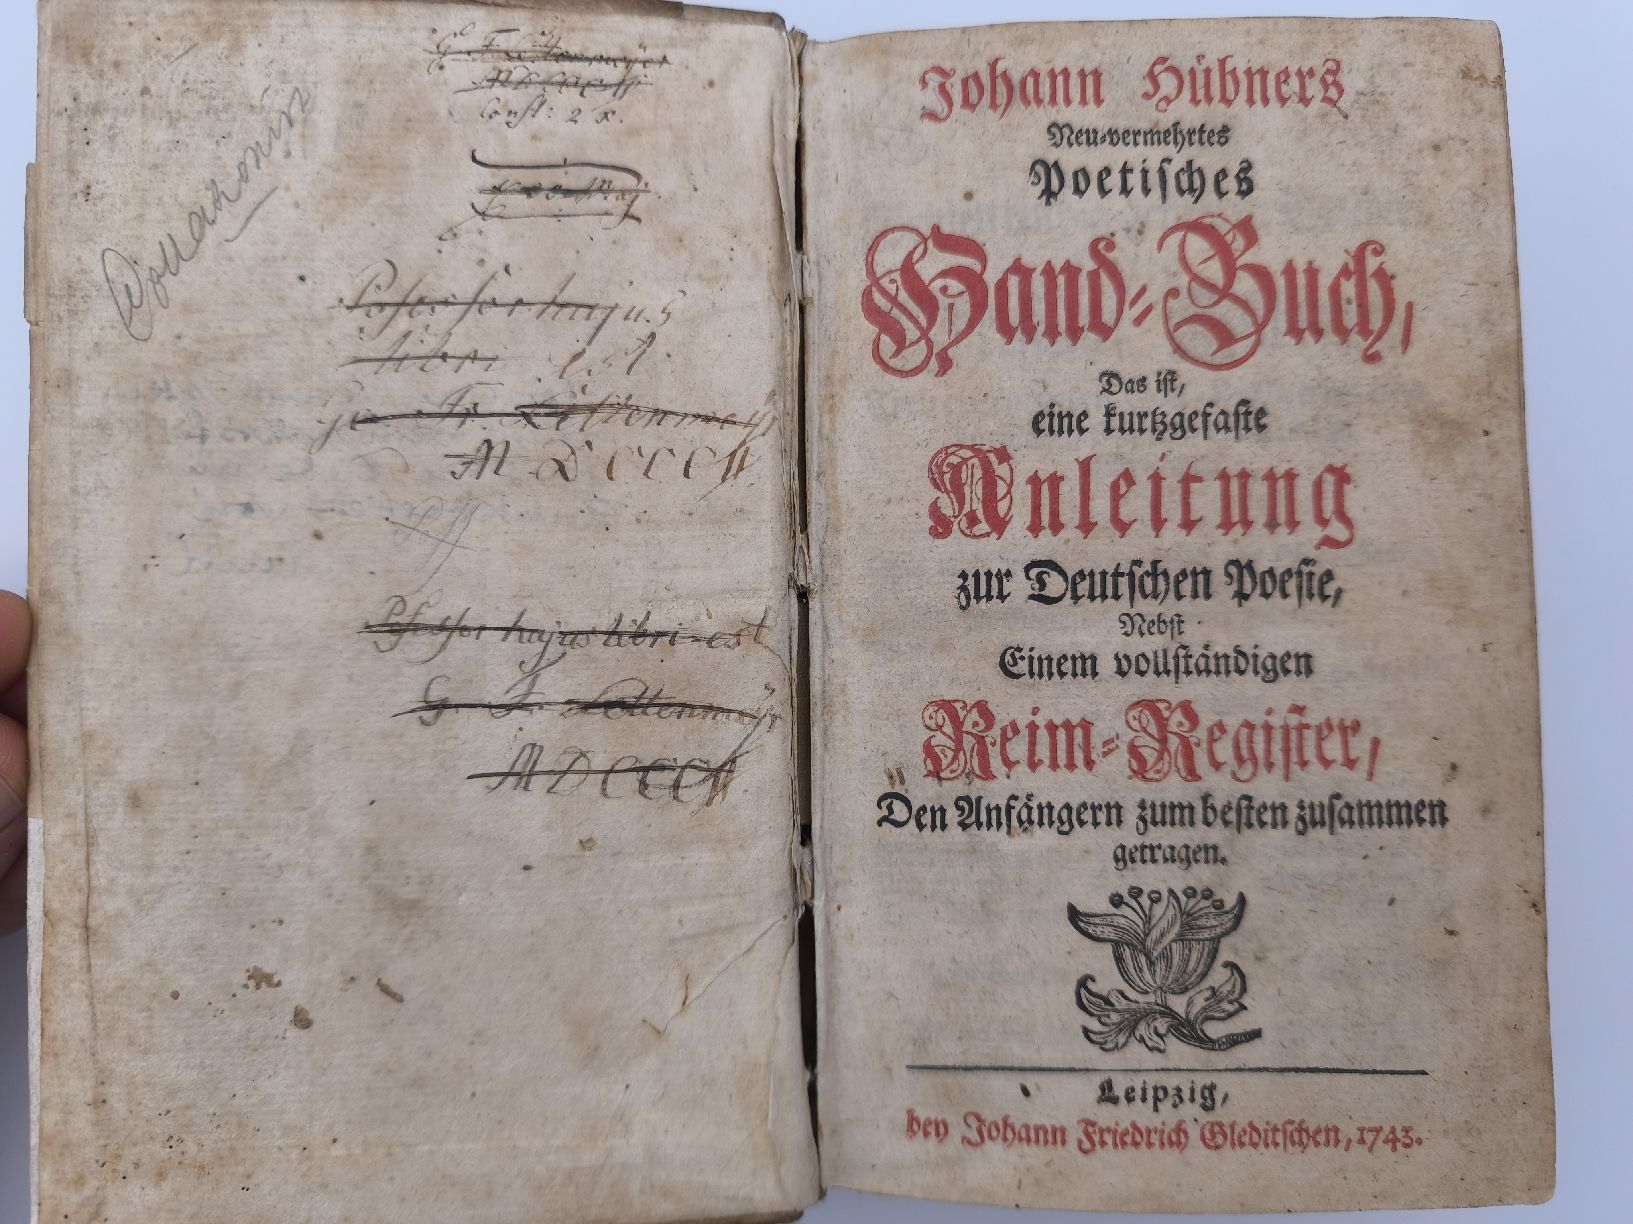 Const: 2 x.
Possessor hujus
libri est
G. Fr.
MDCCCII
Possessor hujus libri est
G. F. Lettenmeÿr
MDCCCII
Johann Hübners
Neu-vermehrtes
Poetisches
Hand-Buch,
Das ist,
eine kurtzgefaste
Anleitung
zur Deutschen Poesie,
Nebst
Einem vollständigen
Reim-Register,
Den Anfängern zum besten zusammen
getragen.
Leipzig,
bey Johann Friedrich Gleditschen, 1743.